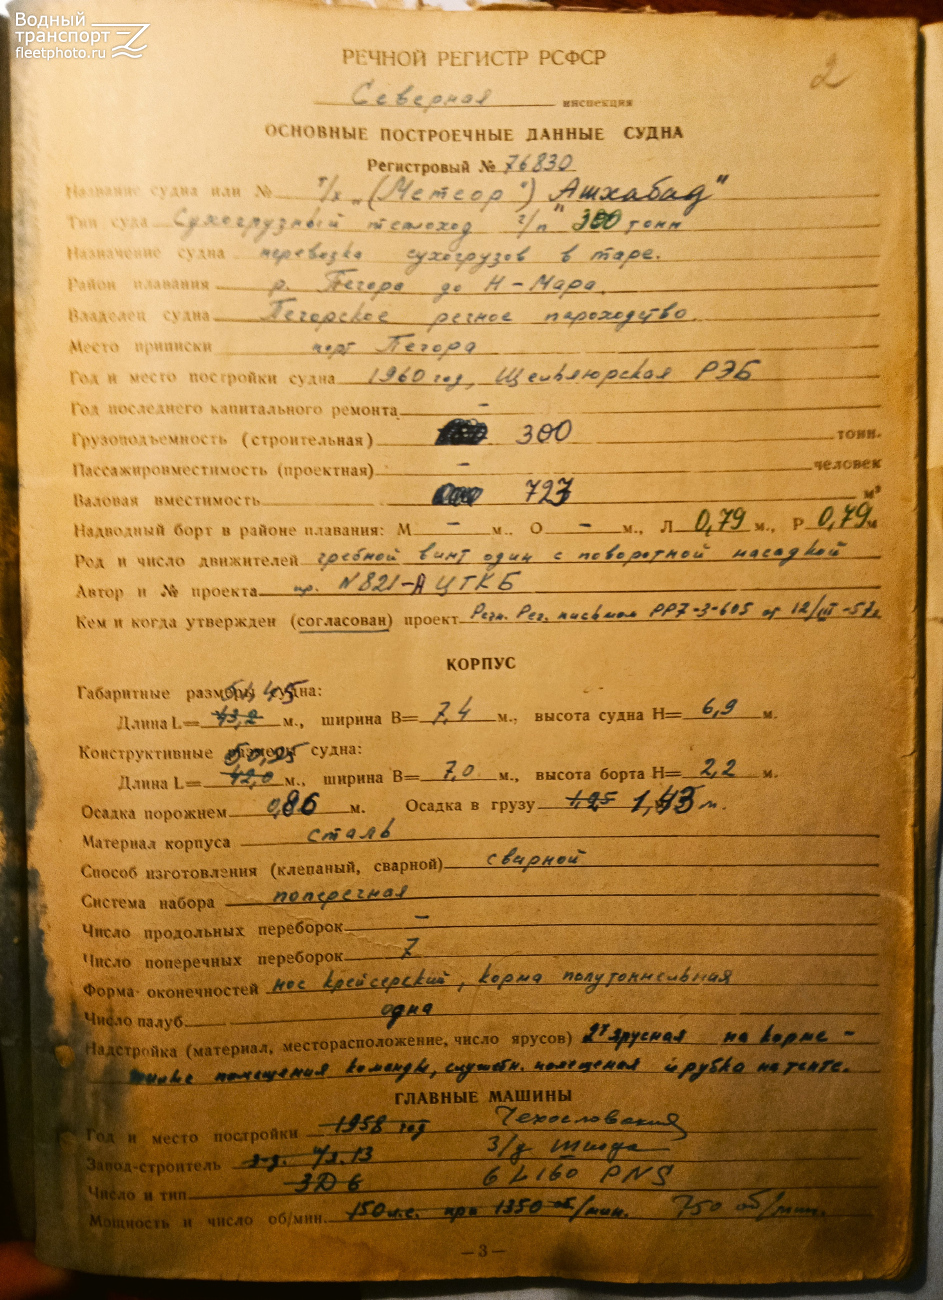 Водный
транспорт
fleetphoto.ru
2
РЕЧНОЙ РЕГИСТР РСФСР
Северная инспекция
ОСНОВНЫЕ ПОСТРОЕЧНЫЕ ДАННЫЕ СУДНА
Регистровый № 76830
Название судна или № т/х „(Метеор") Ашхабад"
Тип суда Сухогрузный теплоход г/п 300 тонн
Назначение судна перевозка сухогрузов в таре.
Район плавания р. Печора до Н-Мара.
Владелец судна Печорское речное пароходство.
Место приписки порт Печора
Год и место постройки судна 1960 год, Щельяюрская РЭБ
Год последнего капитального ремонта –
Грузоподъемность (строительная) 300 тонн.
Пассажировместимость (проектная) – человек
Валовая вместимость 727 м³
Надводный борт в районе плавания: М – м., О – м., Л 0,79 м., Р 0,79 м
Род и число движителей гребной винт один с поворотной насадкой
Автор и № проекта пр. N821-А ЦТКБ
Кем и когда утвержден (согласован) проект Речн. Рег. письмом РР7-3-605 от 12/III-57г
КОРПУС
Габаритные размеры судна: 51,45
Длина L= 43,2 м., ширина B= 7,4 м., высота судна H= 6,9 м.
Конструктивные размеры судна: 50,25
Длина L= 42,0 м., ширина B= 7,0 м., высота борта H= 2,2 м.
Осадка порожнем 0,86 м. Осадка в грузу 1,25 1,43 м.
Материал корпуса сталь
Способ изготовления (клепаный, сварной) сварной
Система набора поперечная
Число продольных переборок –
Число поперечных переборок 7
Форма оконечностей нос крейсерский, корма полутоннельная
Число палуб одна
Надстройка (материал, месторасположение, число ярусов) 2х ярусная на корме –
жилые помещения команды, служебн. помещения и рубка на тенте.
ГЛАВНЫЕ МАШИНЫ
Год и место постройки 1958 год Чехословакия
Завод-строитель з-д. 3/д Шкода
Число и тип 3Д6 6L160 PNS
Мощность и число об/мин. 150 л.с. при 1350 об/мин. 750 об/мин.
– 3 –